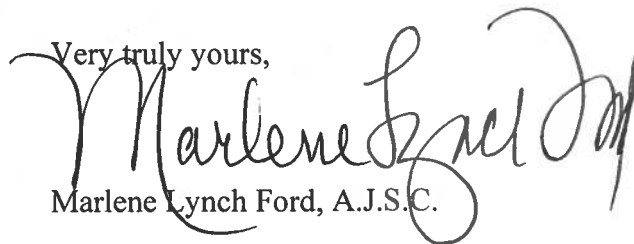 Very truly yours,
Marlene Lynch Ford
Marlene Lynch Ford, A.J.S.C.